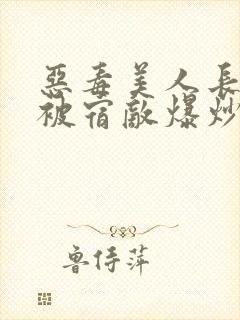 惡毒美人長
被宿敵爆炒
魯侍萍